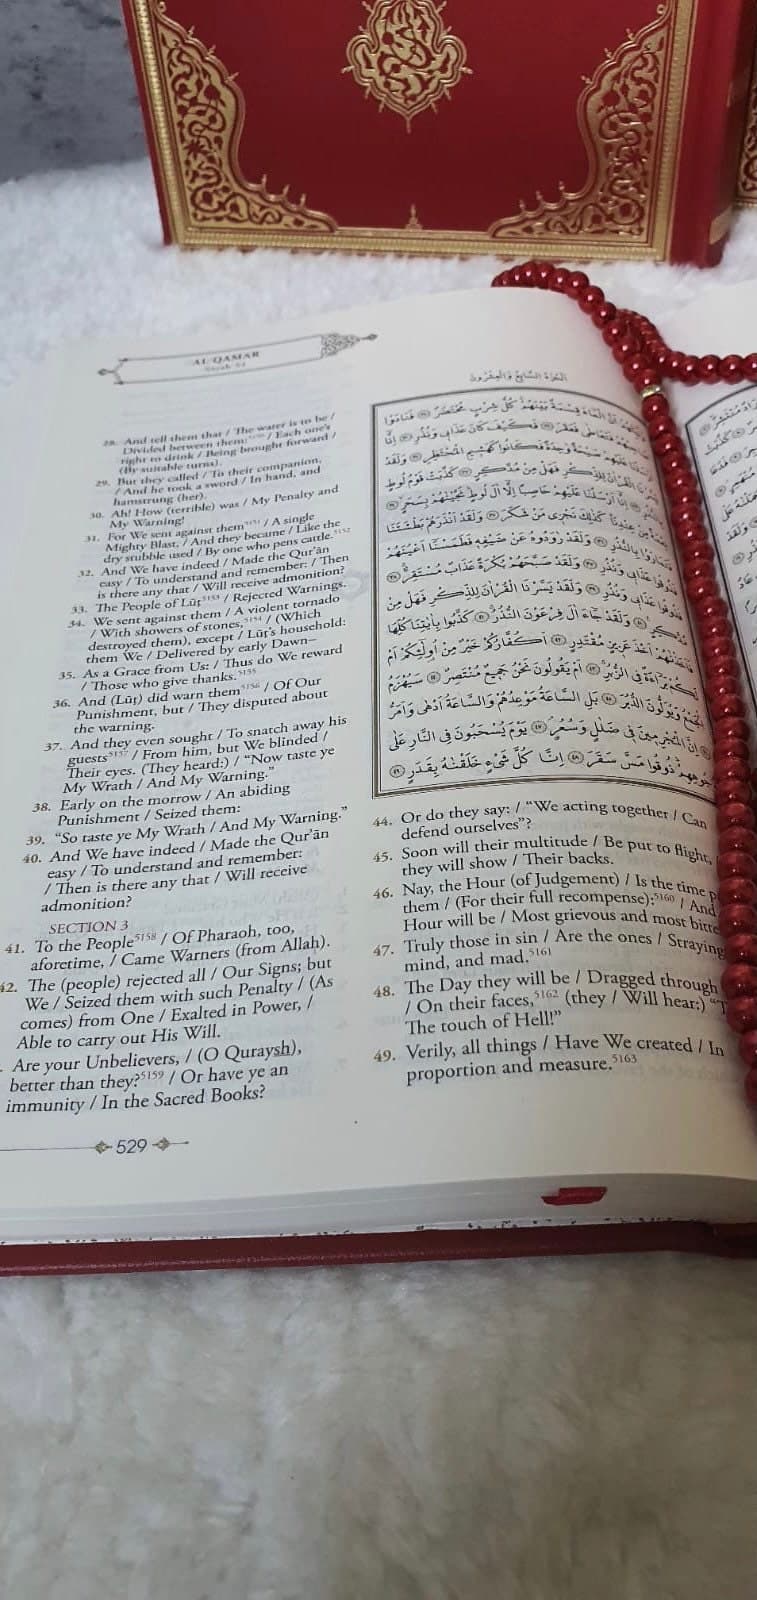 AL-QAMAR
Surah 54
28. And tell them that / The water is to be /
Divided between them: / Each one's
right to drink / Being brought forward /
(By suitable turns).
29. But they called / To their companion,
/ And he took a sword / In hand, and
hamstrung (her).
30. Ah! How (terrible) was / My Penalty and
My Warning!
31. For We sent against them5151 / A single
Mighty Blast, / And they became / Like the
dry stubble used / By one who pens cattle.5152
32. And We have indeed / Made the Qur'ān
easy / To understand and remember: / Then
is there any that / Will receive admonition?
33. The People of Lūṭ5153 / Rejected Warnings.
34. We sent against them / A violent tornado
/ With showers of stones,5154 / (Which
destroyed them), except / Lūṭ's household:
them We / Delivered by early Dawn–
35. As a Grace from Us: / Thus do We reward
/ Those who give thanks.5155
36. And (Lūṭ) did warn them5156 / Of Our
Punishment, but / They disputed about
the warning.
37. And they even sought / To snatch away his
guests5157 / From him, but We blinded /
Their eyes. (They heard:) / "Now taste ye
My Wrath / And My Warning."
38. Early on the morrow / An abiding
Punishment / Seized them:
39. "So taste ye My Wrath / And My Warning."
40. And We have indeed / Made the Qur'ān
easy / To understand and remember:
/ Then is there any that / Will receive
admonition?
SECTION 3
41. To the People5158 / Of Pharaoh, too,
aforetime, / Came Warners (from Allah).
42. The (people) rejected all / Our Signs; but
We / Seized them with such Penalty / (As
comes) from One / Exalted in Power, /
Able to carry out His Will.
Are your Unbelievers, / (O Quraysh),
better than they?5159 / Or have ye an
immunity / In the Sacred Books?
529
الجزء السابع والعشرون
الْمَاءَ قِسْمَةٌ بَيْنَهُمْ كُلُّ شِرْبٍ مُحْتَضَرٌ ﴿٢٨﴾ فَنَادَوْا
فَتَعَاطَى فَعَقَرَ ﴿٢٩﴾ فَكَيْفَ كَانَ عَذَابِي وَنُذُرِ ﴿٣٠﴾ إِنَّا
عَلَيْهِمْ صَيْحَةً وَاحِدَةً فَكَانُوا كَهَشِيمِ الْمُحْتَظِرِ ﴿٣١﴾ وَلَقَدْ
الْقُرْآنَ لِلذِّكْرِ فَهَلْ مِنْ مُدَّكِرٍ ﴿٣٢﴾ كَذَّبَتْ قَوْمُ لُوطٍ
إِنَّا أَرْسَلْنَا عَلَيْهِمْ حَاصِبًا إِلَّا آلَ لُوطٍ نَجَّيْنَاهُمْ بِسَحَرٍ ﴿٣٤﴾
مِنْ عِنْدِنَا كَذَلِكَ نَجْزِي مَنْ شَكَرَ ﴿٣٥﴾ وَلَقَدْ أَنْذَرَهُمْ بَطْشَتَنَا
فَتَمَارَوْا بِالنُّذُرِ ﴿٣٦﴾ وَلَقَدْ رَاوَدُوهُ عَنْ ضَيْفِهِ فَطَمَسْنَا أَعْيُنَهُمْ
فَذُوقُوا عَذَابِي وَنُذُرِ ﴿٣٧﴾ وَلَقَدْ صَبَّحَهُمْ بُكْرَةً عَذَابٌ مُسْتَقِرٌّ ﴿٣٨﴾
فَذُوقُوا عَذَابِي وَنُذُرِ ﴿٣٩﴾ وَلَقَدْ يَسَّرْنَا الْقُرْآنَ لِلذِّكْرِ فَهَلْ مِنْ
مُدَّكِرٍ ﴿٤٠﴾ وَلَقَدْ جَاءَ آلَ فِرْعَوْنَ النُّذُرُ ﴿٤١﴾ كَذَّبُوا بِآيَاتِنَا كُلِّهَا
فَأَخَذْنَاهُمْ أَخْذَ عَزِيزٍ مُقْتَدِرٍ ﴿٤٢﴾ أَكُفَّارُكُمْ خَيْرٌ مِنْ أُولَئِكُمْ أَمْ
لَكُمْ بَرَاءَةٌ فِي الزُّبُرِ ﴿٤٣﴾ أَمْ يَقُولُونَ نَحْنُ جَمِيعٌ مُنْتَصِرٌ ﴿٤٤﴾ سَيُهْزَمُ
الْجَمْعُ وَيُوَلُّونَ الدُّبُرَ ﴿٤٥﴾ بَلِ السَّاعَةُ مَوْعِدُهُمْ وَالسَّاعَةُ أَدْهَى وَأَمَرُّ
إِنَّ الْمُجْرِمِينَ فِي ضَلَالٍ وَسُعُرٍ ﴿٤٧﴾ يَوْمَ يُسْحَبُونَ فِي النَّارِ عَلَى
وُجُوهِهِمْ ذُوقُوا مَسَّ سَقَرَ ﴿٤٨﴾ إِنَّا كُلَّ شَيْءٍ خَلَقْنَاهُ بِقَدَرٍ ﴿٤٩﴾
44. Or do they say: / "We acting together / Can
defend ourselves"?
45. Soon will their multitude / Be put to flight,
they will show / Their backs.
46. Nay, the Hour (of Judgement) / Is the time
them / (For their full recompense):5160 / And
Hour will be / Most grievous and most
47. Truly those in sin / Are the ones / Straying
mind, and mad.5161
48. The Day they will be / Dragged through
/ On their faces,5162 (they / Will hear:)
The touch of Hell!"
49. Verily, all things / Have We created / In
proportion and measure.5163